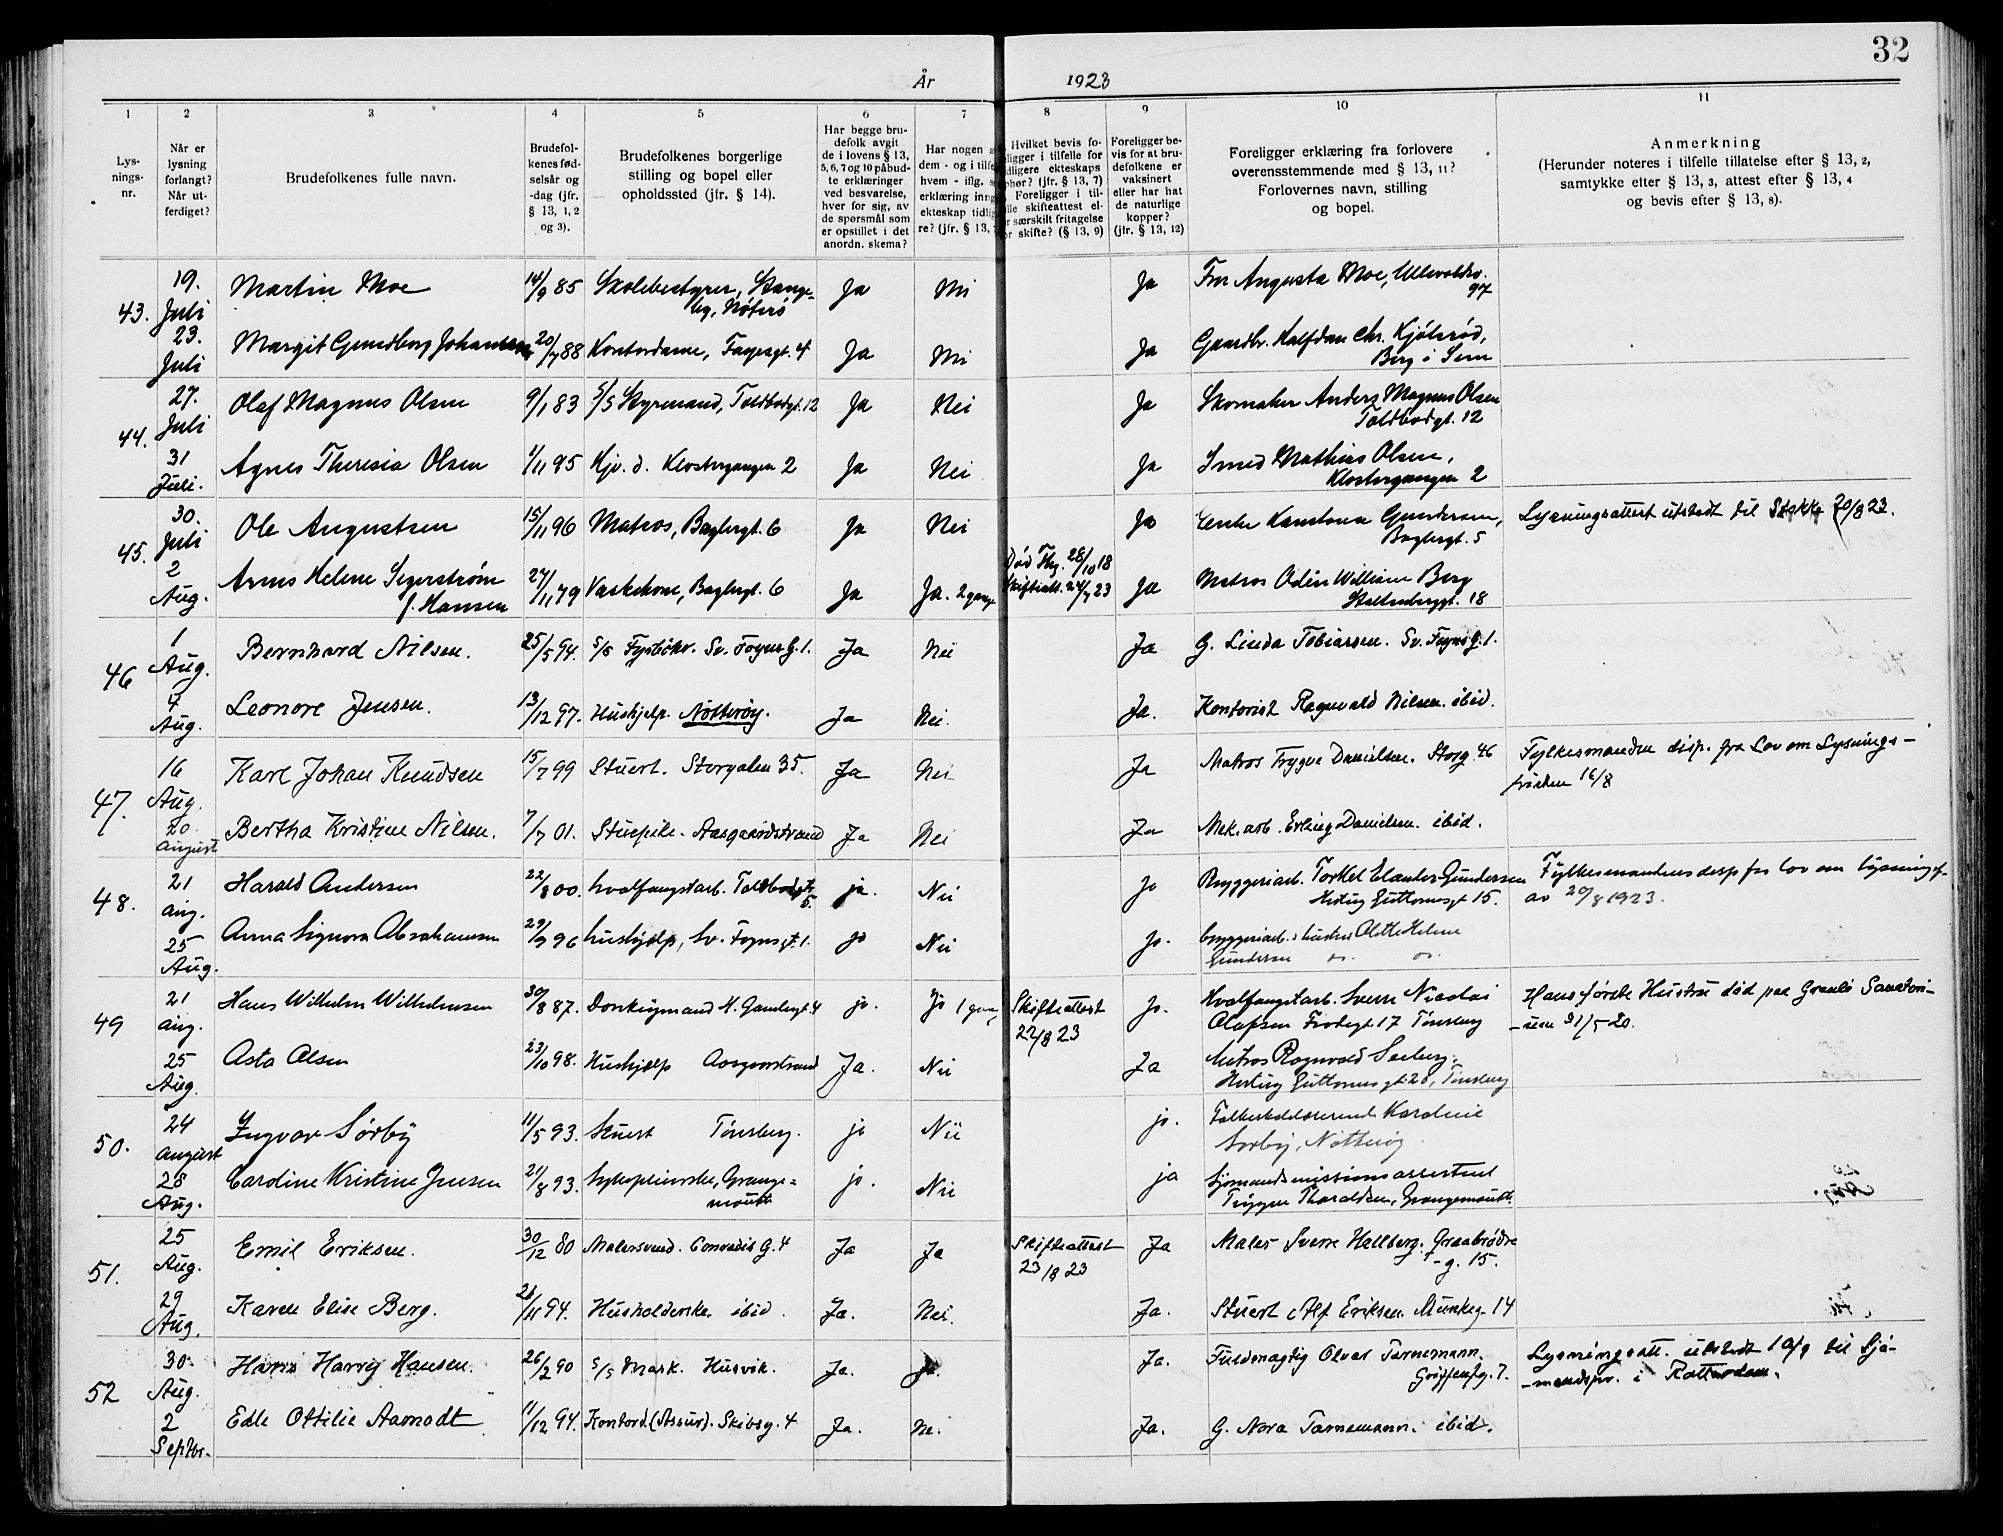 32
År 1923
1 2 3 4 5 6 7 8 9 10 11
Lys-
nings-
nr.
Når er
lysning
forlangt?
Når ut-
ferdiget?
Brudefolkenes fulle navn.
Brudefol-
kenes fød-
selsår og
-dag (jfr.
§ 13, 1, 2
og 3).
Brudefolkenes borgerlige
stilling og bopel eller
opholdssted (jfr. § 14).
Har begge bru-
defolk avgit
de i lovens § 13,
5, 6, 7 og 10 påbud-
te erklæringer
ved besvarelse,
hver for sig, av
de spørsmål som
er opstillet i det
anordn. skema?
Har nogen a
dem - og i tilfe
hvem - iflg. s
erklæring inng
ekteskap tidlig
re? (jfr. § 13,
Hvilket bevis fo-
ligger i tilfelle for
dligere ekteskaps
phør? (jfr. § 13, 7)
Foreligger i til-
lle skifteattest el-
r særskilt fritagelse
or skifte? (§ 13, 9)
Foreligger be-
vis for at bru-
defolkene er
vaksinert
eller har hat
de naturlige
kopper?
(jfr. § 13, 12)
Foreligger erklæring fra forlovere
overensstemmende med § 13, 11?
Forlovernes navn, stilling
og bopel.
Anmerkning
(Herunder noteres i tilfelle tillatelse efter § 13, 2,
samtykke efter § 13, 3, attest efter § 13, 4
og bevis efter § 13, 8).
43. 19. Juli Martin Moe 14/9 85 Skolebestyrer, Stange-
by, Nøterø Ja Nei Ja Fru Augusta Moe, Ullevoldsv.
97
23. Juli Margit Gundborg Johansen 20/7 88 Kontordame, Fayesgt. 4 Ja Nei Ja Gaardbr. Halfdan Chr. Kjølsrød,
Berg i Sem
44. 27. Juli Olaf Magnus Olsen 9/1 83 S/S Styrmand, Toldbodgt. 12 Ja Nei Ja Skomaker Anders Magnus Olsen
Toldbodgt. 12
31 Juli. Agnes Theresia Olsen 1/11 95 Hjv. d. Klostergangen 2 Ja Nei Ja Smed Mathias Olsen,
Klostergangen 2
45. 30. Juli Ole Augustsen 15/11 96 Matros, Baglergt. 6 Ja Nei Ja Enke Gundersen,
Baglergt. 5 Lysningsattest utstedt til Stokke 20/8 23.
2 Aug. Helene Segerstrøm
f. Hansen 27/11 79 Vaskekone, Baglergt. 6 Ja Ja. 2 gange Død Tbg. 28/10 18
Skifteatt. 24/7 23 Ja Matros Odin William Berg
Stoltenberggt. 18
46 1 Aug. Bernhard Nilsen. 25/5 94. S/S Fyrbøter. Sv. Foyns G. 1. Ja Nei Ja G. Linda Tobiassen. Sv. Foyns G. 1.
4 Aug. Leonore Jensen. 13/12 97. Hushjelp. Nøtterøy. Ja Nei. Ja. Kontorist Ragnvald Nilsen. ibid.
47. 16 Aug. Karl Johan Knudsen 15/7 99 Stuert. Storgaten 35. Ja Nei Ja Matros Trygve Danielsen. Storg. 46 Fylkesmanden disp. fra Lov om Lysnings-
fristen 16/8
20. august Bertha Kristine Nilsen. 7/7 01. Stuepike. Aasgaardstrand Ja Nei Ja Mek. arb. Erling Danielsen. ibid.
48. 21 aug. Harald Andersen 22/8 00. hvalfangstarb. Toldbodgt.
5. ja. Nei ja Bryggeriarb. Torkel Elander Gundersen
Hertug Guttormsgt 15. Fylkesmandens desp fra lov om lysningsf.
av 20/8 1923.
25 Aug. Anna Signora Abrahamsen 29/9 96 hushjælp, Sv. Foynsgt. 1. ja Nei ja. bryggeriarb. hustru Alette Helene
Gundersen
49 21 aug. Hans Wilhelm Wilhelmsen 30/8 87. Donkeymand N. Gamlegt. 4 ja. Ja 1 gang Skifteattest
22/8 23 Ja. Hvalfangstarb. Sverre Nicolai
Olafsen Frodegt 17 Tønsberg Hans første Hustru død paa Granli Sanatori-
-um 31/5 20.
25 Aug. Asta Olsen 23/10 98. Hushjælp Aasgaardstrand Ja. Nei Ja Matros Ragnvald Seeberg.
Hertug Guttormsgt 20, Tønsberg
50. 24 august Ingvar Sørby 11/5 93. Stuert Tønsberg. ja Nei ja. Karoline
Sørby, Nøtterøy
28 Aug. Caroline Kristine Jensen 21/8 93. Sykepleierske, Grange-
mouth ja. Nei ja Sjømandsmissionsassistent
Trygve Tharaldsen, Grangemouth
51. 25 Aug. Emil Eriksen. 30/12 80 Malersvend. Conradis G. 4 Ja Ja Skifteattest
23/8 23 Ja Maler Sverre Hallberg. Graabrødre
-g. 15.
29 Aug. Karen Elise Berg. 28/11 94. Husholderske. ibid. Ja. Nei. Ja. Stuert Alf Eriksen. Munkeg. 14
52 30. Aug. Hans Harry Hansen. 26/2 90 S/S Mask. Husvik. Ja. Ja. Ja. Fuldmægtig Olvar Tannemann.
Griffenfg. 7. Lysningsatt. utstedt 10/9 til Sjø-
-mandspr. i Rotterdam.
2 Septbr. Edle Ottilie Aamodt 11/12 94. Kontord. (Assur). Skibsg. 4 Ja. Nei. Ja. G. Nora Tannemann. ibid.